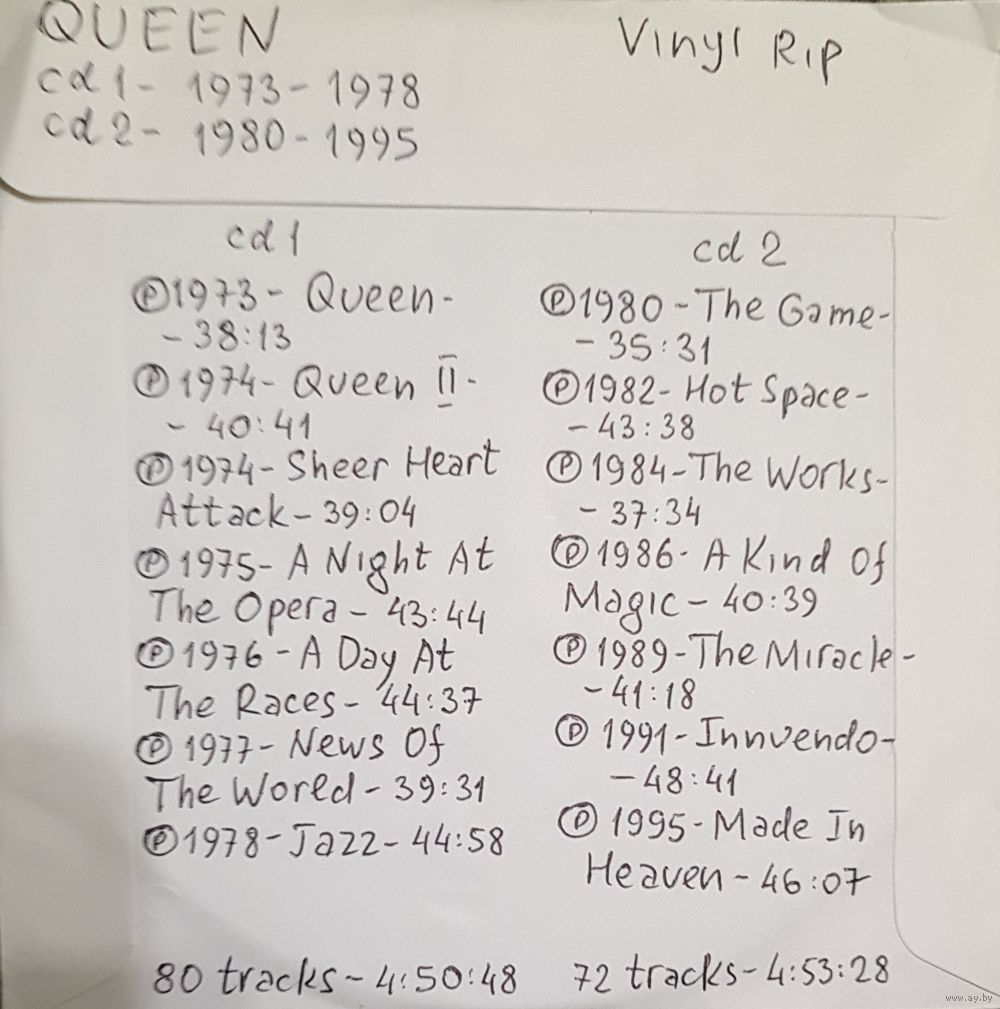 QUEEN
Vinyl Rip
cd 1 - 1973 - 1978
cd 2 - 1980 - 1995
cd 1
Ⓟ1973 - Queen -
- 38:13
Ⓟ1974 - Queen II -
- 40:41
Ⓟ1974 - Sheer Heart
Attack - 39:04
Ⓟ1975 - A Night At
The Opera - 43:44
Ⓟ1976 - A Day At
The Races - 44:37
Ⓟ1977 - News Of
The World - 39:31
Ⓟ1978 - Jazz - 44:58
80 tracks - 4:50:48
cd 2
Ⓟ1980 - The Game -
- 35:31
Ⓟ1982 - Hot Space -
- 43:38
Ⓟ1984 - The Works -
- 37:34
Ⓟ1986 - A Kind Of
Magic - 40:39
Ⓟ1989 - The Miracle -
- 41:18
Ⓟ1991 - Innuendo -
- 48:41
Ⓟ1995 - Made In
Heaven - 46:07
72 tracks - 4:53:28
www.ay.by